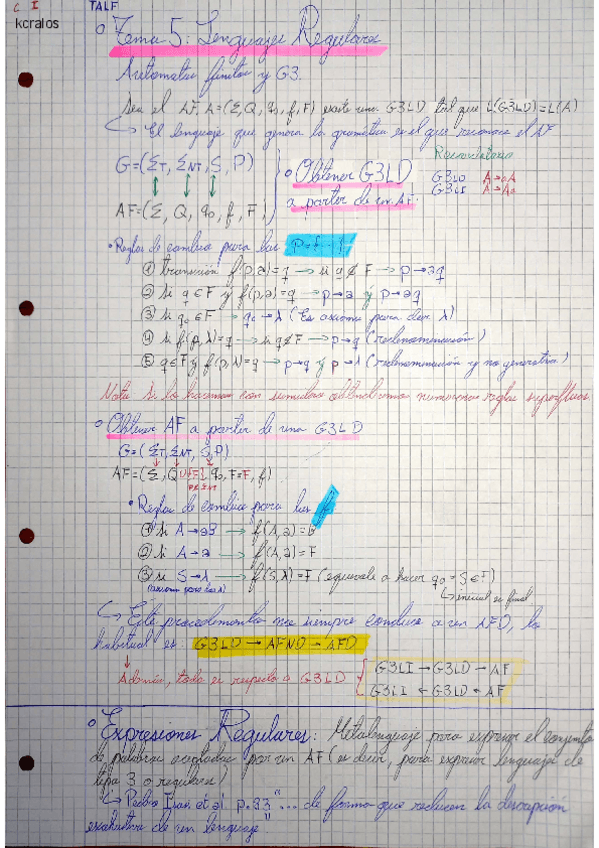 C I TALF
kcralos
Tema 5: Lenguajes Regulares
Autómatas finitos y G3.
Sea el AF, A=(Σ,Q,q₀,f,F) existe una G3LD tal que L(G3LD)=L(A)
↳ El lenguaje que genera la gramática es el que reconoce el AF
Recordatorio
G=(Σ_T, Σ_NT, S, P)
Obtener G3LD
G3LD A→aA
a partir de un AF.
G3LI A→Aa
AF=(Σ, Q, q₀, f, F)
• Reglas de cambio para las P=f
① transición f(p,a)=q → si q∉F → p→aq
② si q∈F y f(p,a)=q → p→a y p→aq
③ si q₀∈F → q₀→λ (Es axioma puede der. λ)
④ si f(p,λ)=q → si q∉F → p→q (redenominación)
⑤ q∈F y f(p,λ)=q → p→q y p→λ (redenominación y no generativa)
Nota: Si lo hacemos con obtendremos numerosas reglas superfluas
Obtener AF a partir de una G3LD
G=(Σ_T, Σ_NT, S, P)
AF=(Σ, Q∪{F}, q₀, F=F, f)
F∉Σ_NT
• Reglas de cambio para las f
① si A→aB → f(A,a)=B
② si A→a → f(A,a)=F
③ si S→λ → f(S,λ)=F (equivale a hacer q₀=S∈F)
↳ inicial es final
↳ Este procedimiento no siempre conduce a un AFD, lo
habitual es: G3LD → AFND → AFD
Además, todo es respecto a G3LD
G3LI → G3LD → AF
G3LI ← G3LD ← AF
Expresiones Regulares: Metalenguaje para expresar el conjunto
de palabras aceptadas por un AF (es decir, para expresar lenguajes de
tipo 3 o regulares)
↳ Pedro Isasi et al. p.83 "... de forma que reducen la descripción
exhaustiva de un lenguaje"